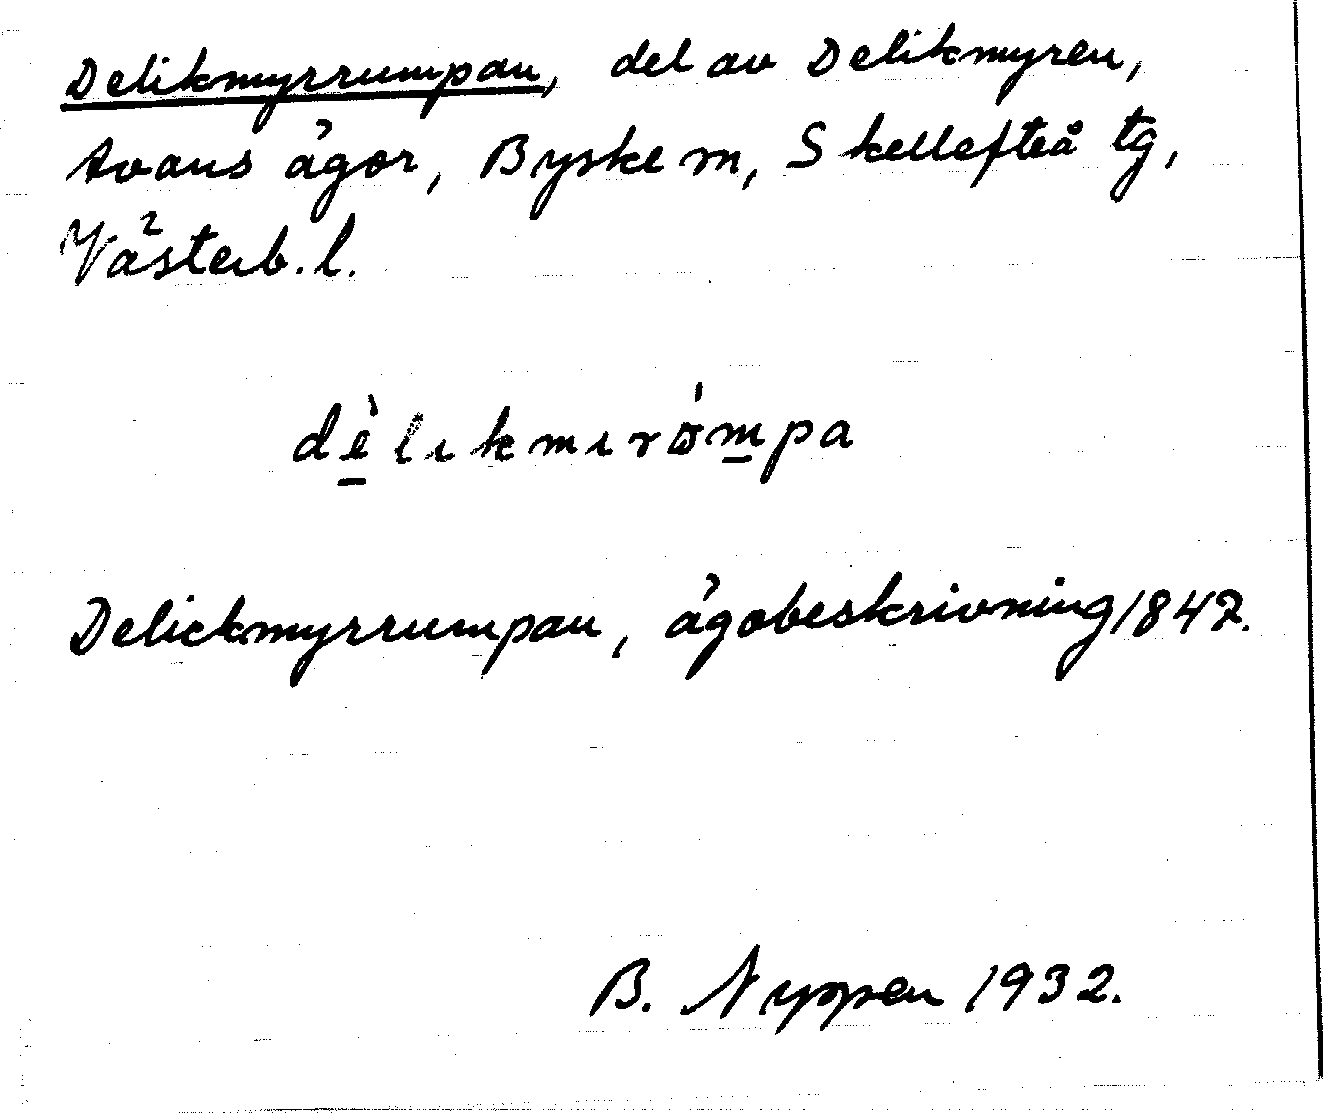 Delikmyrrumpan, del av Delikmyren,
Avans ägor, Byske sn, Skellefteå tg,
Västerb. l.
dèlıkmırómpa
Delickmyrrumpan, ägobeskrivning 1847.
B. Nyppen 1932.